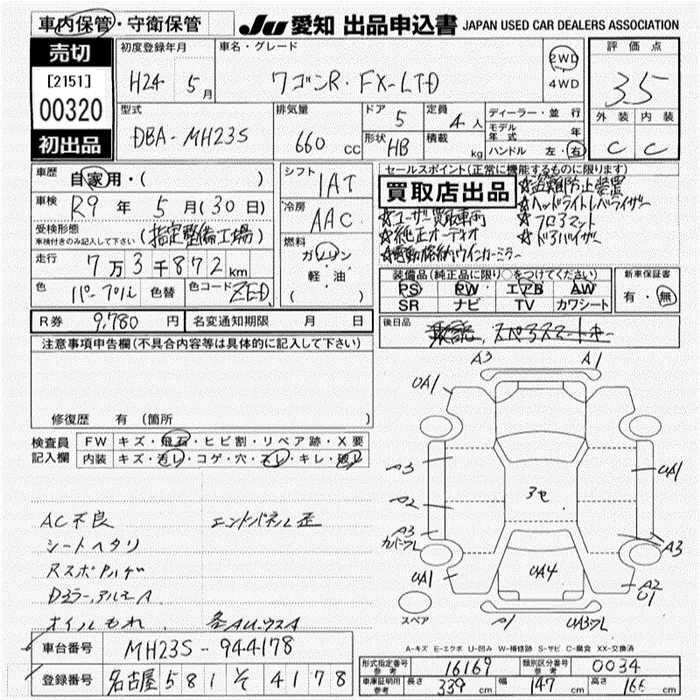 車内保管・守衛保管
JU 愛知 出品申込書 JAPAN USED CAR DEALERS ASSOCIATION
売切
[2151]
00320
初出品
初度登録年月
H24 5月
車名・グレード
ワゴンR・FX-LTD
2WD
4WD
評価点
3.5
外装 内装
C C
型式
DBA-MH23S
排気量
660 cc
ドア 5
定員 4人
形状 HB
積載 kg
ディーラー・並行
モデル年式 年
ハンドル 左・右
車歴
自家用・( )
車検
R9年 5月(30日)
受検形態
車検付きのみ記入して下さい
(指定整備工場)
走行
7万3千872km
色
パープル
色替
色コード ZED
シフト
IAT
冷房
AAC
燃料
ガソリン
軽・油
( )
セールスポイント(正常に機能するものに限ります)
買取店出品
☆盗難防止装置
☆ヘッドライトレベライザー
☆ユーザー買取車両
☆フロアマット
☆純正オーディオ
☆ドアバイザー
☆電動格納ウインカーミラー
装備品(純正品に限り○をつけてください)
PS PW エアB AW
SR ナビ TV カワシート
新車保証書
有・無
R券 9,780円 名変通知期限 月 日
後日品
注意事項申告欄(不具合内容等は具体的に記入して下さい)
修復歴 有(箇所 )
検査員
記入欄
FW キズ・飛石・ヒビ割・リペア跡・X要
内装 キズ・汚レ・コゲ・穴・スレ・キレ・破レ
AC不良 エンドパネル歪
シートヘタリ
RスポAハゲ
Dミラー,アルミA
オイルもれ 各AUウスA
A3 A1
UA1
A3
UA1
A2
3セ
A3
カバーワレ
A3
UA1
UA4
A2
U1
スペア
A1
UA3ワレ
A-キズ E-エクボ U-凹み W-補修跡 S-サビ C-腐食 XX-交換済
車台番号 MH23S-944178
登録番号 名古屋 581 そ 4178
形式指定番号 参考 16169
類別区分番号 参考 0034
車庫証明用 参考 長さ 339cm 幅 147cm 高さ 166cm